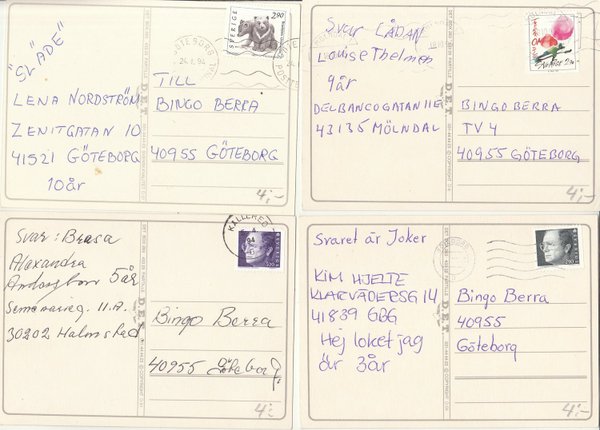 "SLÄDE"
LENA NORDSTRÖM
ZENITGATAN 10
41521 GÖTEBORG
10år
SVERIGE 2.90
GÖTEBORG
24.1.94
TILL
BINGO BERRA
40955 GÖTEBORG
4:-
DET
Svar LÅDAN
Louise Thelmen
9år
DELBANCOGATAN 11E
43135 MÖLNDAL
BINGO BERRA
TV4
40955 GÖTEBORG
4:-
DET
Svar: Brasa
Alexandra
5år
30202 Halmstad
KÅLLERED
Bingo Berra
40955 Göteborg.
4:-
DET
Svaret är Joker
KIM HJELTE
KLARVÄDERSG 14
41839 GBG
Hej loket jag
är 3år
Bingo Berra
40955
Göteborg
4:-
DET